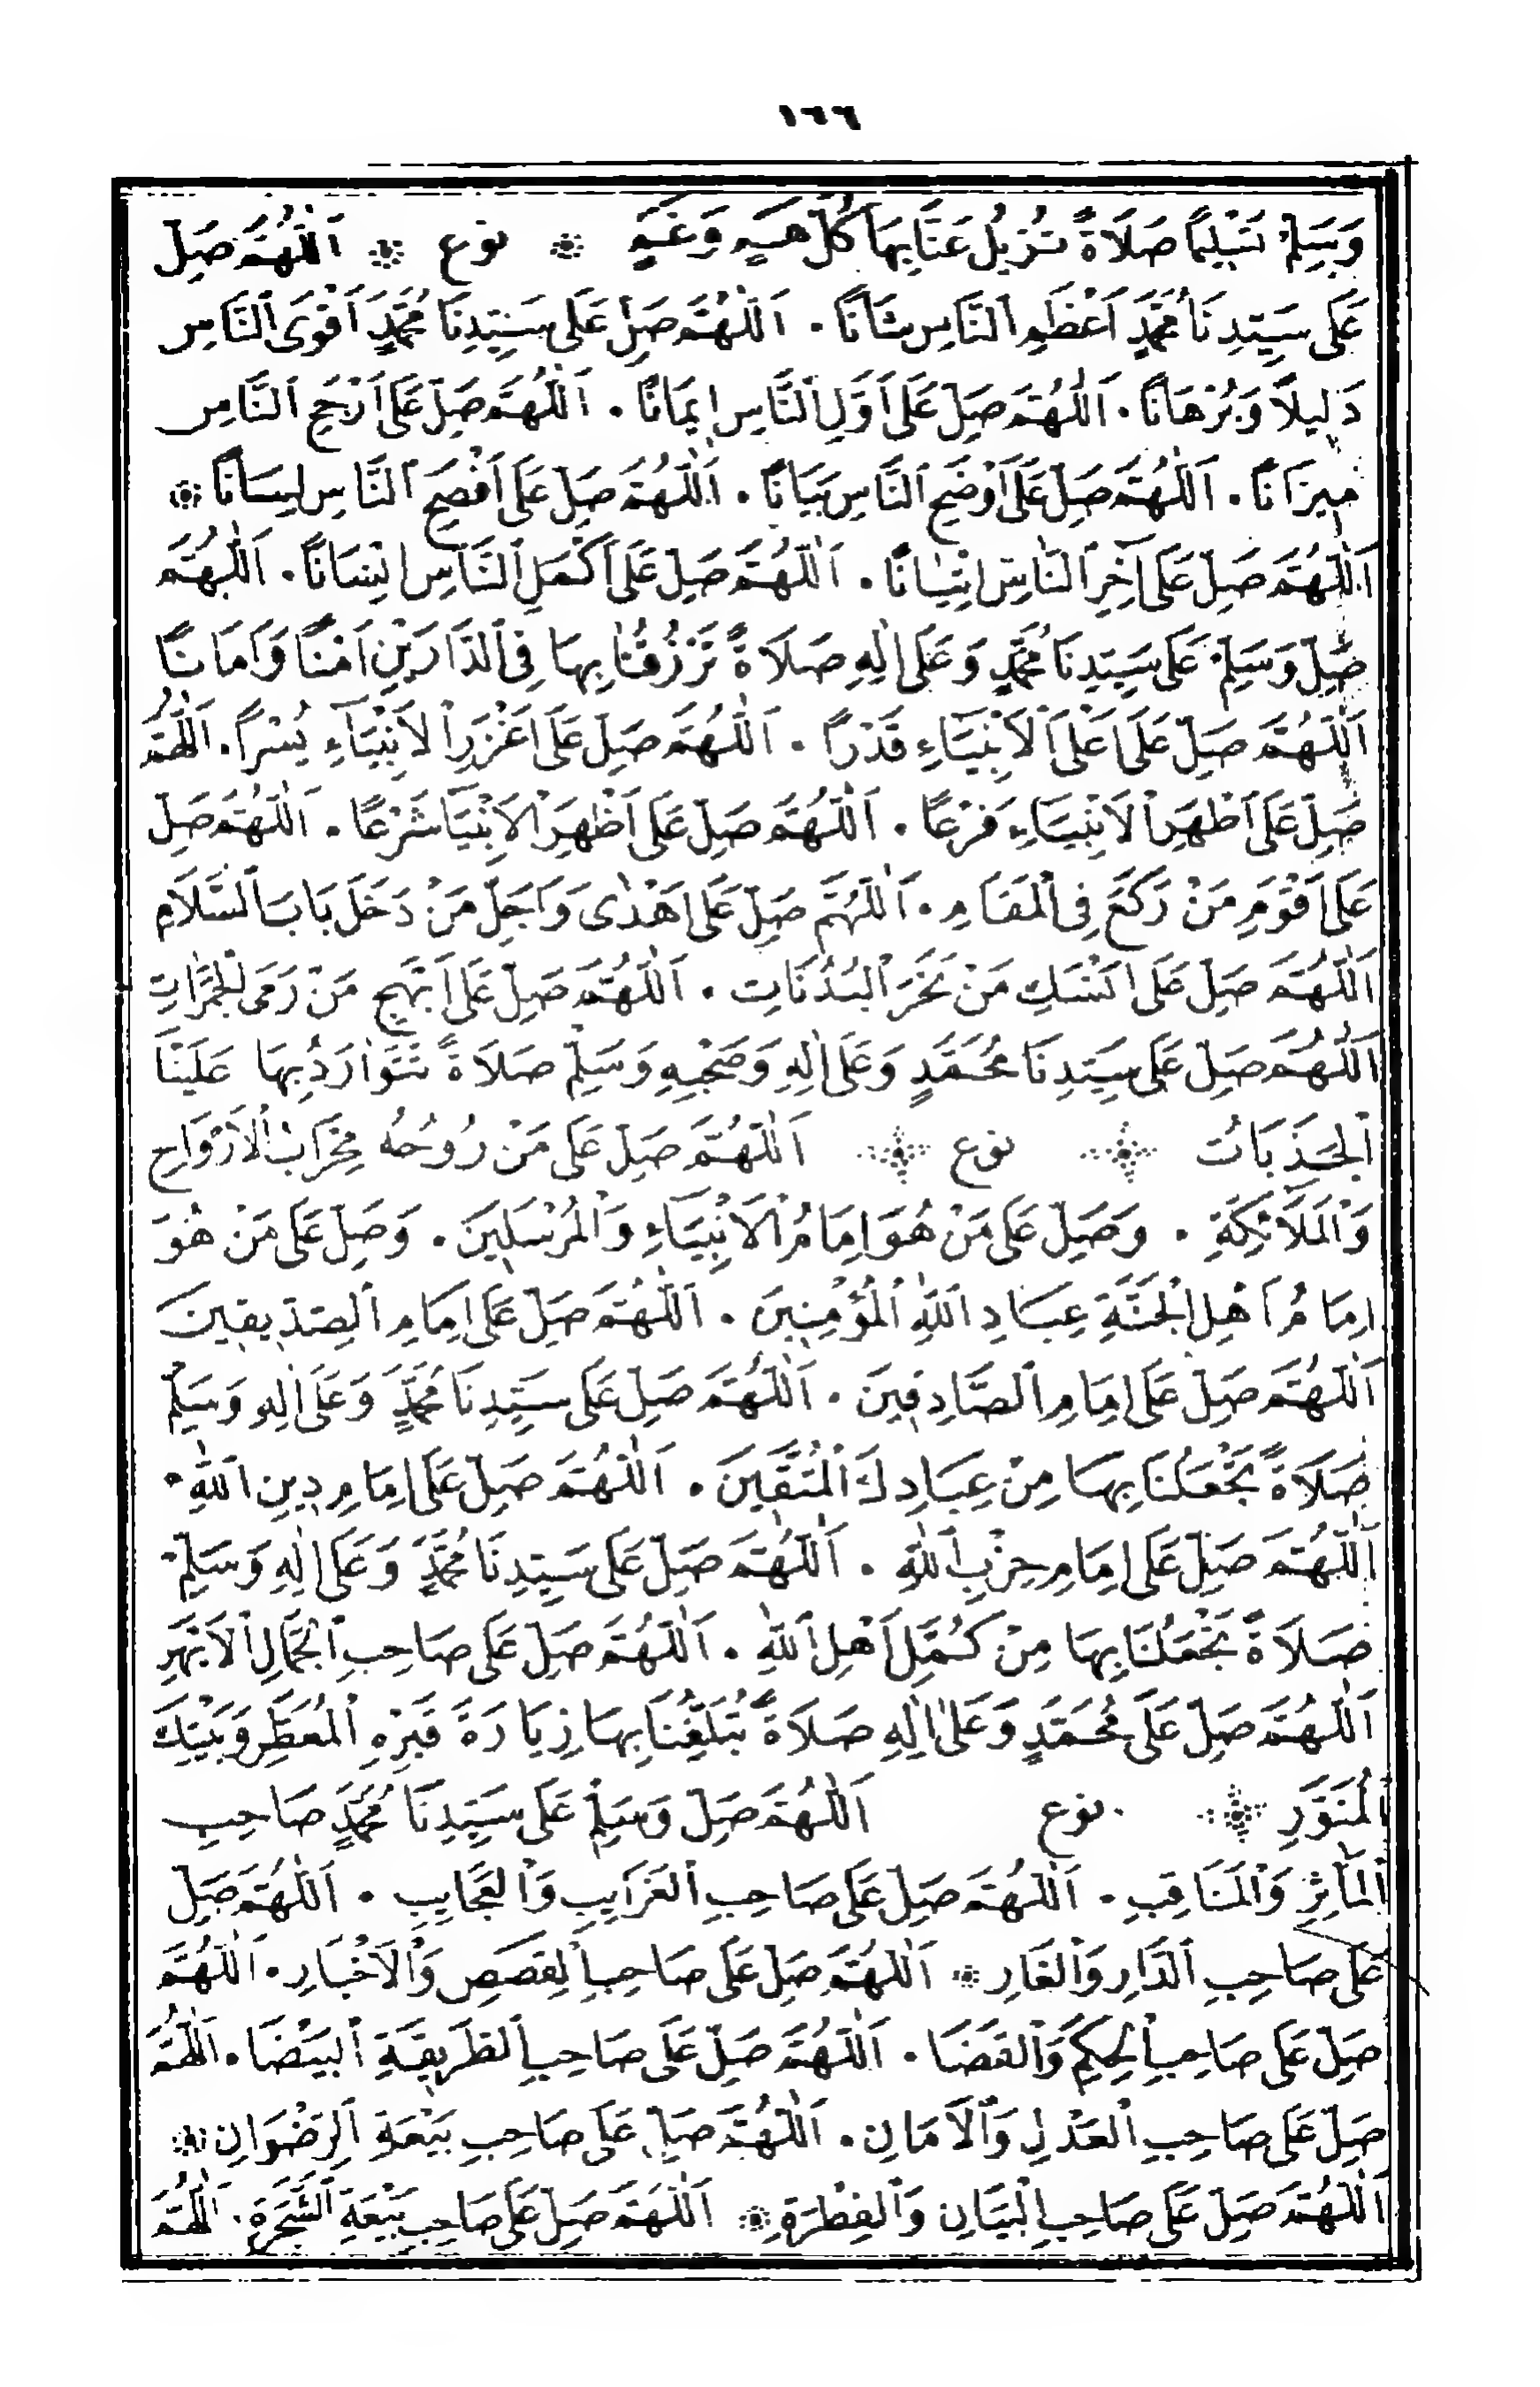 ١٦٦
وَسَلِّمْ تَسْلِيمًا صَلَاةً تُزِيلُ عَنَّا بِهَا كُلَّ هَمٍّ وَغَمٍّ ۞ نوع ۞ اَللّٰهُمَّ صَلِّ
عَلَى سَيِّدِنَا مُحَمَّدٍ اَعْظَمِ النَّاسِ شَانًا . اَللّٰهُمَّ صَلِّ عَلَى سَيِّدِنَا مُحَمَّدٍ اَقْوَى النَّاسِ
دَلِيلًا وَبُرْهَانًا . اَللّٰهُمَّ صَلِّ عَلَى اَوَّلِ النَّاسِ اِيمَانًا . اَللّٰهُمَّ صَلِّ عَلَى اَرْجَحِ النَّاسِ
مِيزَانًا . اَللّٰهُمَّ صَلِّ عَلَى اَوْضَحِ النَّاسِ بَيَانًا . اَللّٰهُمَّ صَلِّ عَلَى اَفْصَحِ النَّاسِ لِسَانًا ۞
اَللّٰهُمَّ صَلِّ عَلَى آخِرِ النَّاسِ اِتْيَانًا . اَللّٰهُمَّ صَلِّ عَلَى اَكْمَلِ النَّاسِ اِنْسَانًا . اَللّٰهُمَّ
صَلِّ وَسَلِّمْ عَلَى سَيِّدِنَا مُحَمَّدٍ وَعَلَى اٰلِهِ صَلَاةً تَرْزُقُنَا بِهَا فِى الدَّارَيْنِ اَمْنًا وَاَمَانًا
اَللّٰهُمَّ صَلِّ عَلَى اَعْلَى الْاَنْبِيَاءِ قَدْرًا . اَللّٰهُمَّ صَلِّ عَلَى اَغْزَرِ الْاَنْبِيَاءِ يُسْرًا . اَللّٰهُمَّ
صَلِّ عَلَى اَطْهَرِ الْاَنْبِيَاءِ فَرْعًا . اَللّٰهُمَّ صَلِّ عَلَى اَظْهَرِ الْاَنْبِيَا شَرْعًا . اَللّٰهُمَّ صَلِّ
عَلَى اَقْوَمِ مَنْ رَكَعَ فِى الْمَقَامِ . اَللّٰهُمَّ صَلِّ عَلَى اَهْدٰى وَاَجَلِّ مَنْ دَخَلَ بَابَ السَّلَامِ
اَللّٰهُمَّ صَلِّ عَلَى اَنْسَكِ مَنْ نَحَرَ الْبَدَنَاتِ . اَللّٰهُمَّ صَلِّ عَلَى اَبْهَجِ مَنْ رَمَى الْجَمَرَاتِ
اَللّٰهُمَّ صَلِّ عَلَى سَيِّدِنَا مُحَمَّدٍ وَعَلَى اٰلِهِ وَصَحْبِهِ وَسَلِّمْ صَلَاةً تَتَوَارَدُ بِهَا عَلَيْنَا
الْجَذَبَاتُ ۞ نوع ۞ اَللّٰهُمَّ صَلِّ عَلَى مَنْ رُوحُهُ مِحْرَابُ الْاَرْوَاحِ
وَالْمَلَائِكَةِ . وَصَلِّ عَلَى مَنْ هُوَ اِمَامُ الْاَنْبِيَاءِ وَالْمُرْسَلِينَ . وَصَلِّ عَلَى مَنْ هُوَ
اِمَامُ اَهْلِ الْجَنَّةِ عِبَادِ اللّٰهِ الْمُؤْمِنِينَ . اَللّٰهُمَّ صَلِّ عَلَى اِمَامِ الصِّدِّيقِينَ
اَللّٰهُمَّ صَلِّ عَلَى اِمَامِ الصَّادِقِينَ . اَللّٰهُمَّ صَلِّ عَلَى سَيِّدِنَا مُحَمَّدٍ وَعَلَى اٰلِهِ وَسَلِّمْ
صَلَاةً تَجْعَلُنَا بِهَا مِنْ عِبَادِكَ الْمُتَّقِينَ . اَللّٰهُمَّ صَلِّ عَلَى اِمَامِ دِينِ اللّٰهِ .
اَللّٰهُمَّ صَلِّ عَلَى اِمَامِ حِزْبِ اللّٰهِ . اَللّٰهُمَّ صَلِّ عَلَى سَيِّدِنَا مُحَمَّدٍ وَعَلَى اٰلِهِ وَسَلِّمْ
صَلَاةً تَجْعَلُنَا بِهَا مِنْ كُمَّلِ اَهْلِ اللّٰهِ . اَللّٰهُمَّ صَلِّ عَلَى صَاحِبِ الْجَمَالِ الْاَبْهَرِ
اَللّٰهُمَّ صَلِّ عَلَى مُحَمَّدٍ وَعَلَى اٰلِهِ صَلَاةً تُبَلِّغُنَا بِهَا زِيَارَةَ قَبْرِهِ الْمُعَظَّمِ وَبَيْتِكَ
الْمُنَوَّرِ ۞ نوع اَللّٰهُمَّ صَلِّ وَسَلِّمْ عَلَى سَيِّدِنَا مُحَمَّدٍ صَاحِبِ
الْمَآثِرِ وَالْمَنَاقِبِ . اَللّٰهُمَّ صَلِّ عَلَى صَاحِبِ الْغَرَايِبِ وَالْعَجَايِبِ . اَللّٰهُمَّ صَلِّ
عَلَى صَاحِبِ الدَّارِ وَالْغَارِ ۞ اَللّٰهُمَّ صَلِّ عَلَى صَاحِبِ الْقِصَصِ وَالْاَخْبَارِ . اَللّٰهُمَّ
صَلِّ عَلَى صَاحِبِ الْحِكَمِ وَالْقَضَا . اَللّٰهُمَّ صَلِّ عَلَى صَاحِبِ الطَّرِيقَةِ الْبَيْضَا . اَللّٰهُمَّ
صَلِّ عَلَى صَاحِبِ الْعَدْلِ وَالْاَمَانِ . اَللّٰهُمَّ صَلِّ عَلَى صَاحِبِ بَيْعَةِ الرِّضْوَانِ ۞
اَللّٰهُمَّ صَلِّ عَلَى صَاحِبِ الْبَيَانِ وَالْفِطْرَةِ ۞ اَللّٰهُمَّ صَلِّ عَلَى صَاحِبِ بَيْعَةِ الشَّجَرَةِ . اَللّٰهُمَّ